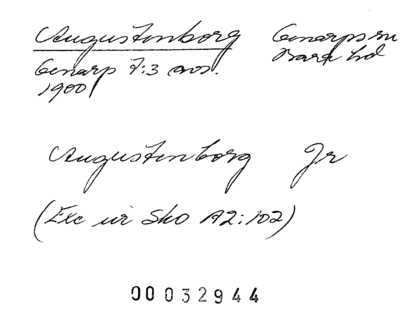 Augustenborg Genarps sn
Genarp 7:3 avs. Bara hd
1900
Augustenborg Gr
(Exc ur Sko A2:102)
00032944